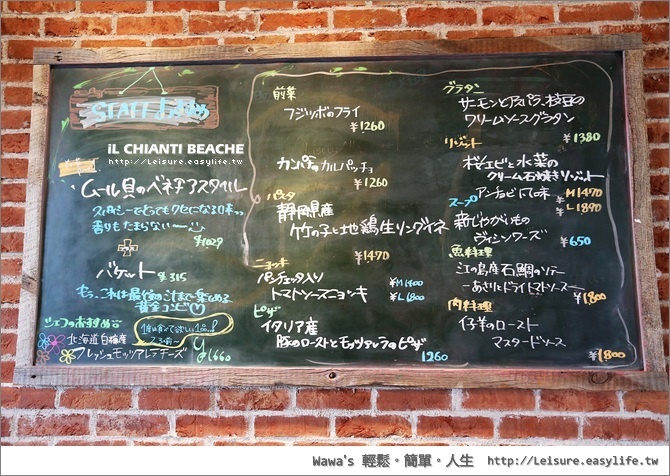 STAFF おすすめ
iL CHIANTI BEACHE
http://Leisure.easylife.tw
ムール貝のベネチアスタイル
スパイシーでとってもクセになる味っ
香りもたまらない〜
¥1029
バゲット ¥315
もう、これは最後の汁まで楽しめる
黄金コンビ♡
シェフのおすすめ
1度は食べて欲しい1品!
2〜3人前〜
北海道白糠産
フレッシュモッツァレラチーズ
¥1660
前菜
フジツボのフライ
¥1260
カンパチのカルパッチョ
¥1260
パスタ
静岡県産
竹の子と地鶏生リングイネ
¥1470
ニョッキ
パンチェッタ入り
トマトソースニョッキ
M 1400
L 1800
ピザ
イタリア産
豚のローストとモッツァレラのピザ
1260
グラタン
サーモンとアスパラ、枝豆の
クリームソースグラタン
¥1380
リゾット
桜エビと水菜の
クリーム石焼きリゾット
アンチョビ風味
M 1470
L 1890
スープ
新じゃがいもの
ヴィシソワーズ
¥650
魚料理
江の島産石鯛のソテー
—あさりとドライトマトソース—
¥1800
肉料理
仔羊のロースト
マスタードソース
¥1800
Wawa's 輕鬆。簡單。人生 http://Leisure.easylife.tw